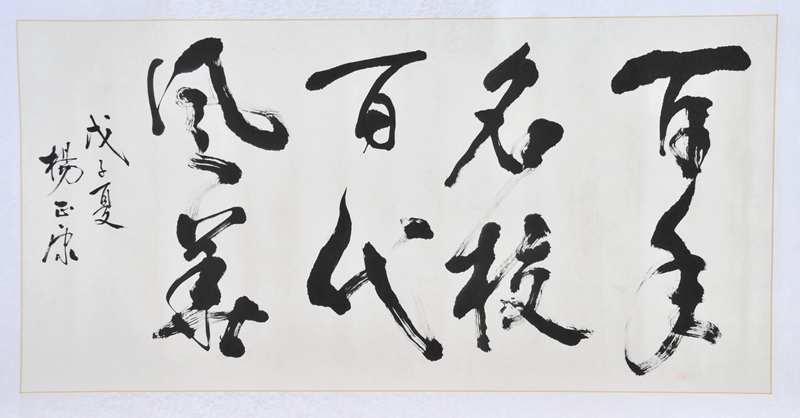 百年
名校
百代
风华
戊子夏
楊正康